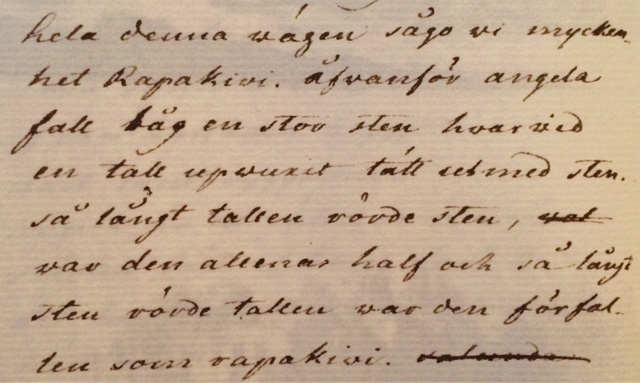 hela denna wägen sågo wi mycken-
het Rapakivi. Åfvanför angela
fall låg en stor sten hvarwid
en tall upwuxit tätt utmed sten.
så långt tallen rörde sten,
war den allenas half och så långt
sten rörde tallen war den förfal-
len som rapakivi.